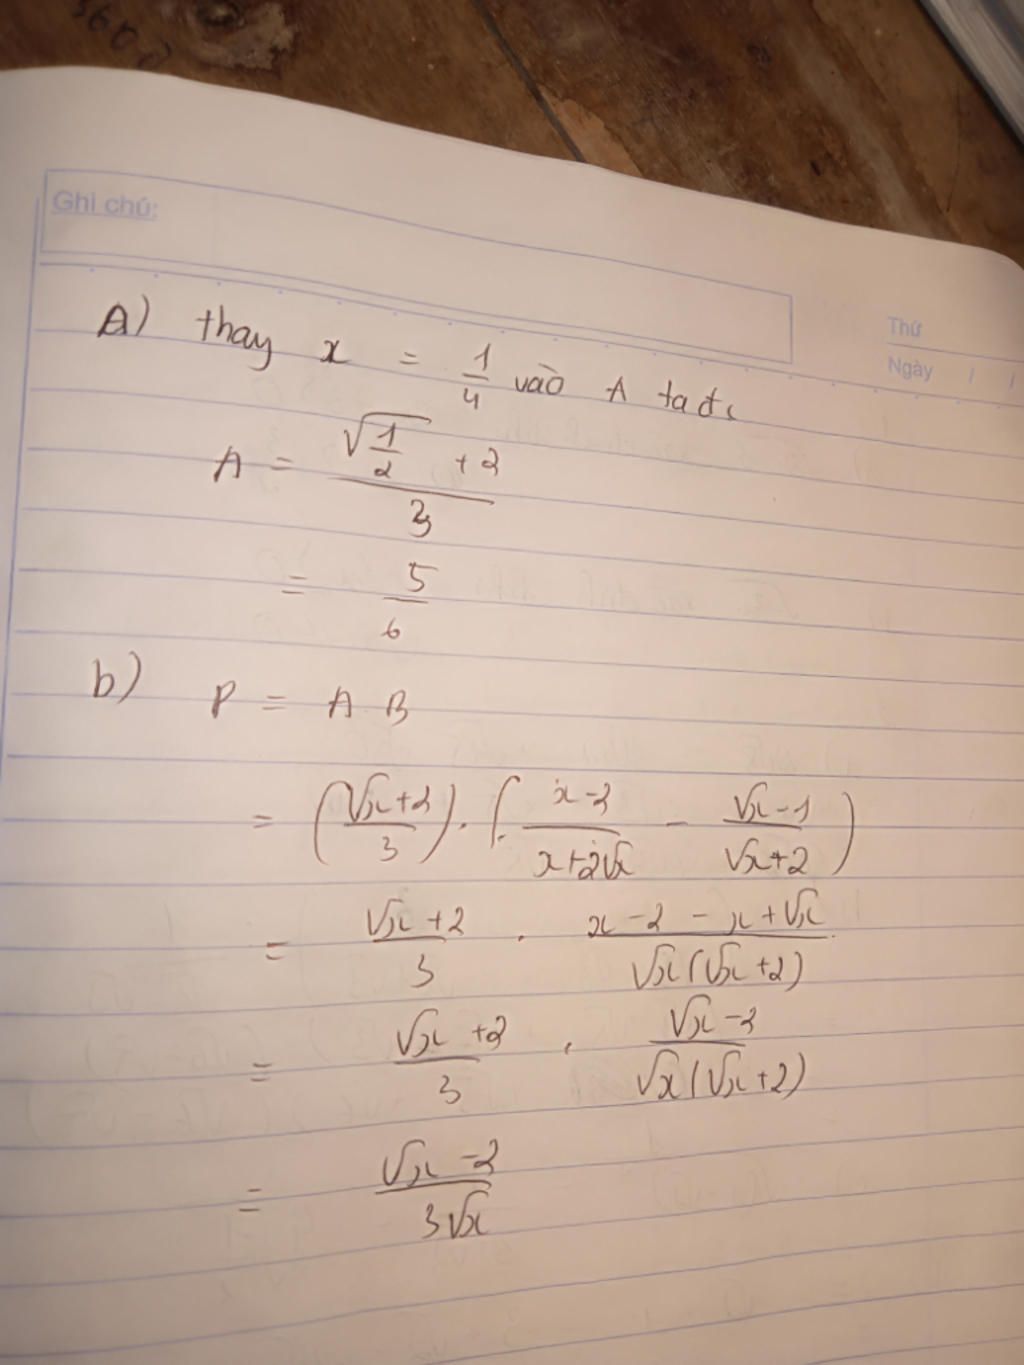 Ghi chú:
Thứ
Ngày / /
A) thay x = 1/4 vào A ta đc
A = (√(1/2) + 2)/3
= 5/6
b) P = A B
= ((√x+2)/3) . ((x-2)/(x+2√x) - (√x-1)/(√x+2))
= (√x+2)/3 . (x-2-x+√x)/(√x(√x+2))
= (√x+2)/3 . (√x-2)/(√x(√x+2))
= (√x-2)/(3√x)